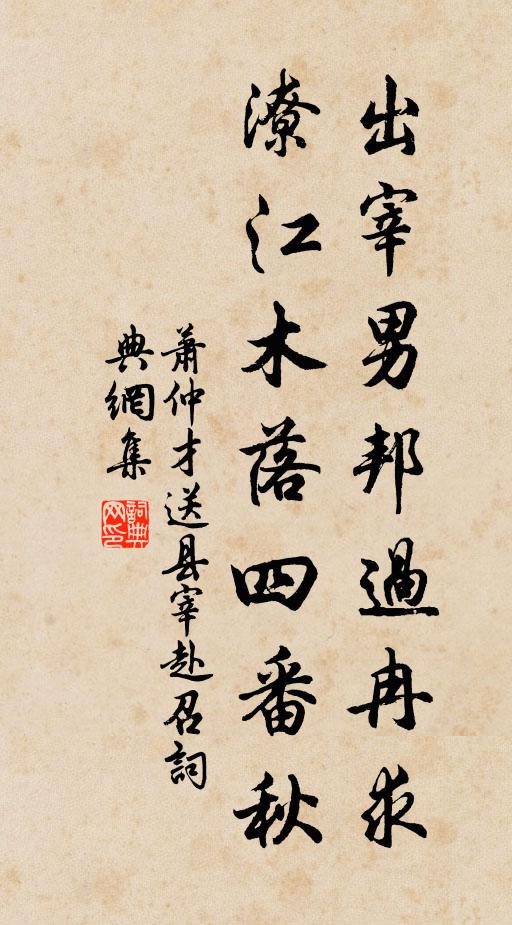 出宰男邦過冉求
潦江木落四番秋
蕭仲才送县宰赴召詞
典網集
詞典网印